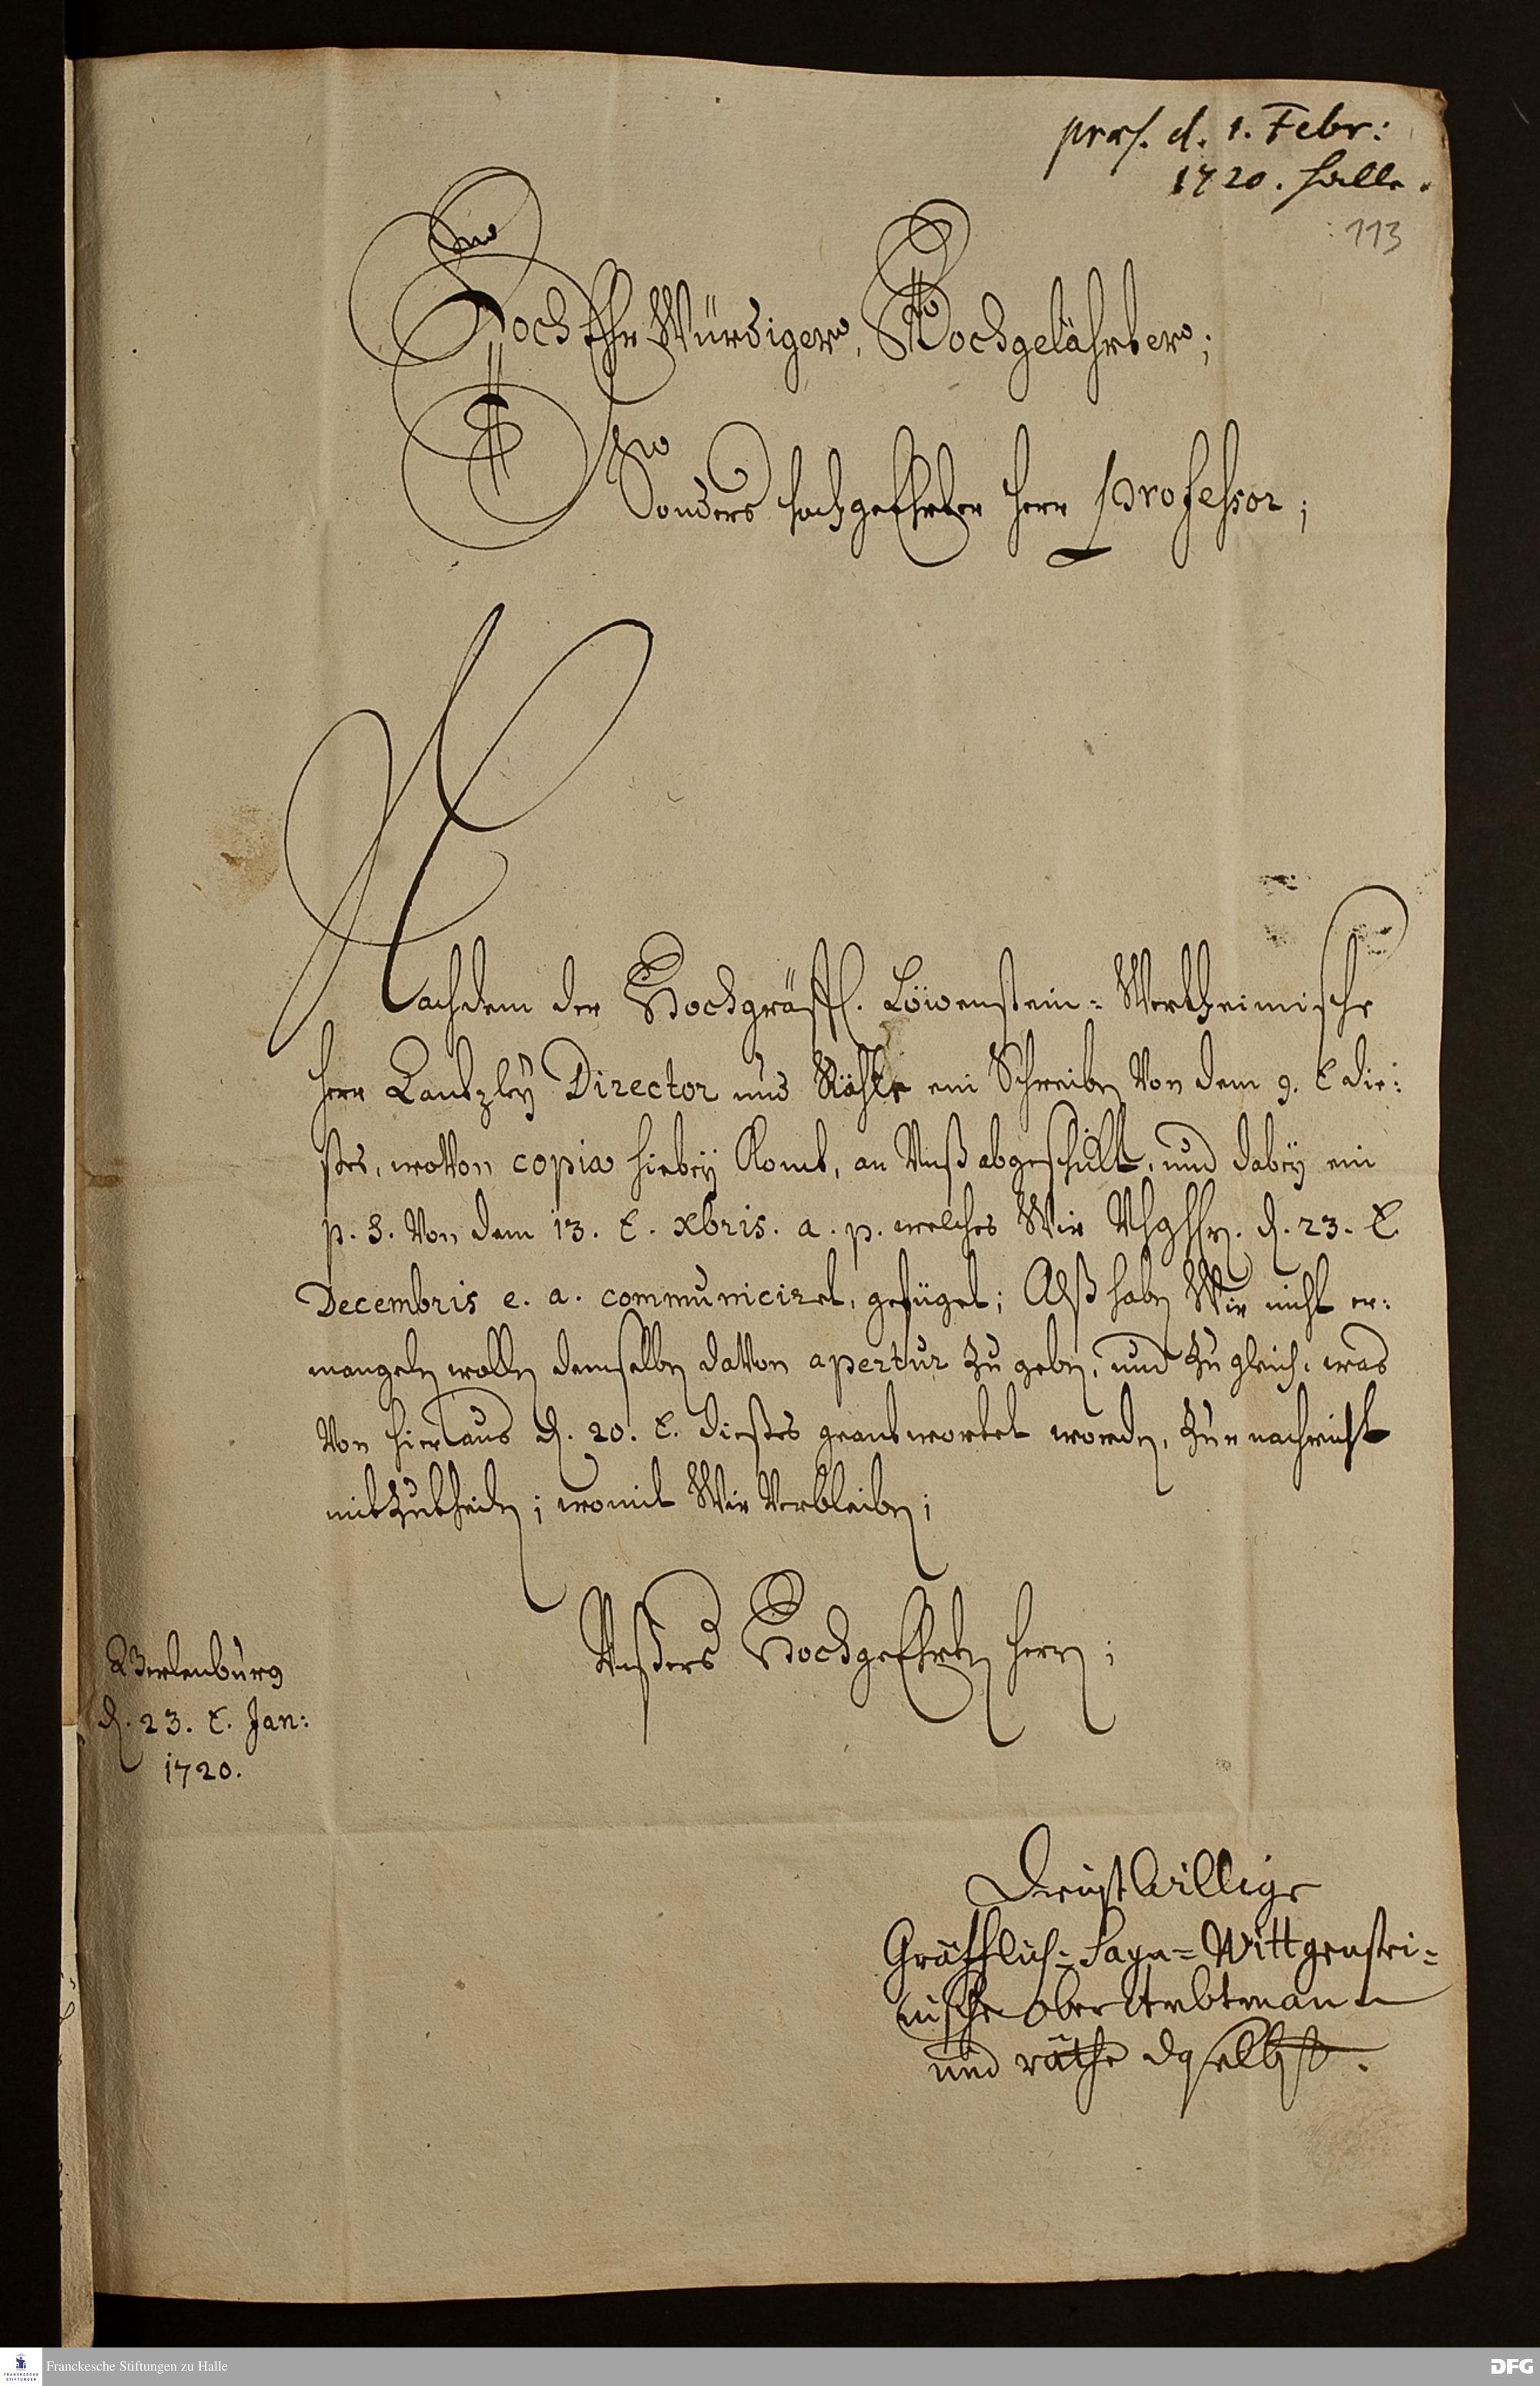 præs. d. 1. Febr:
1720. Halle.
113
HochEhrWürdiger, Hochgelährter;
Insonders hochgeEhrter Herr Professor;
Nachdem der Hochgräffl. Löwenstein-Wertheimische
Herr Cantzley Director und Räthe ein Schreiben Von dem 9. die:
ßes, wovon copia hiebeÿ Komt, an Unß abgeschickt, und dabeÿ ein
p. S. Von dem 13. xbris. a. p. welches Wir d. 23.
Decembris e. a. communiciret, gefüget; Alß haben Wir nicht er:
mangeln wollen demselben davon apertur zu geben, und zu gleich, was
Von hier aus d. 20. dießes geantwortet worden, zur nachricht
mitzutheilen; womit Wir Verbleiben;
Unßers HochgeEhrten Herrn;
Berlenburg
d. 23. Jan:
1720.
Dienstwillige
Gräfflich-Sayn-Wittgenstei-
nische Ober Ambtmann
und räthe daselbst.
Franckesche Stiftungen zu Halle
DFG